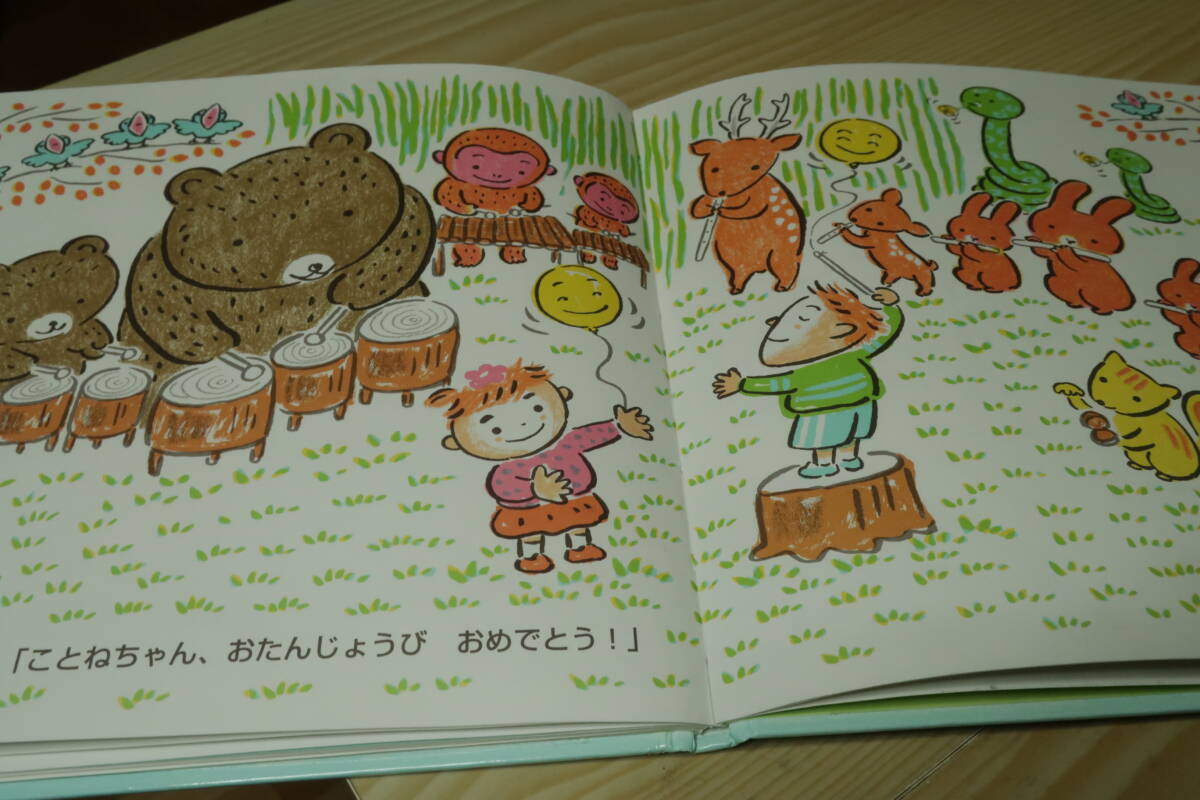 「ことねちゃん、おたんじょうび　おめでとう！」